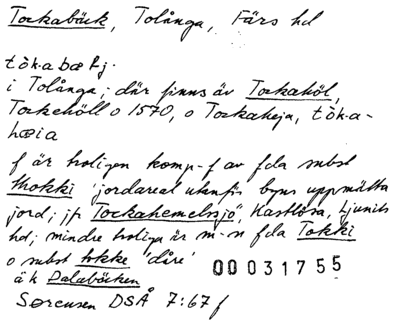 Tockabäck, Tolånga, Färs hd
tò̀k.abækj.
i Tolånga; där finns äv Tockahöl,
Tockehöll o 1570, o Tockaheja, tò̀k.a-
hæia
f är troligen komp-f av fda subst
thokki 'jordareal utanför byns uppmätta
jord; jfr Tockahemelssjö, Kastlösa, Ljunits
hd; mindre troliga är m-n fda Tokki
o subst tokke 'dåre'
00031755
äk Dalabäcken
Sørensen DSÅ 7:67 f